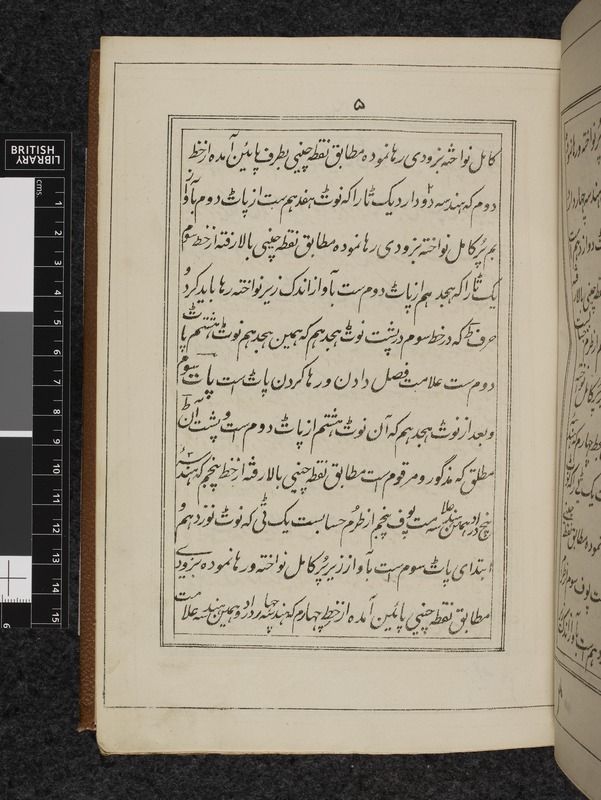 ۵
کامل نواخته بزودی رها نموده مطابق نقطه چینی بطرف پایین آمده از خط
دوم که هندسه ۲ دو دارد یک تا را که نوٹ هفدهم ست از پاٹ دوم بآواز
بم پُر کامل نواخته بزودی رها نموده مطابق نقطه چینی بالا رفته از خط سوم
یک تا را که هجدهم از پاٹ دوم ست بآواز اندک زیر نواخته رها باید کرد و
حرف ط که در خط سوم در پشت نوٹ هجدهم که همین هجدهم نوٹ هشتم پاٹ
دوم ست علامت فصل دادن و رها کردن پاٹ است پاٹ سوم
و بعد از نوٹ هجدهم که آن نوٹ هشتم از پاٹ دوم ست و پشت آن ط
مطلق که مذکور و مرقوم است مطابق نقطه چینی بالا رفته از خط پنجم که هندسه
پنج دارد همین هندسه علامت پنجم از طرم حسابست یک تی که نوٹ نوزدهم و
ابتدای پاٹ سوم است بآواز زیر پُر کامل نواخته و رها نموده بزودی
مطابق نقطه چینی پائین آمده از خط چهارم که هندسه چهار دارد و همین هندسه علامت
BRITISH
LIBRARY
cms.
1
2
3
4
5
6
7
8
9
10
11
12
13
14
15